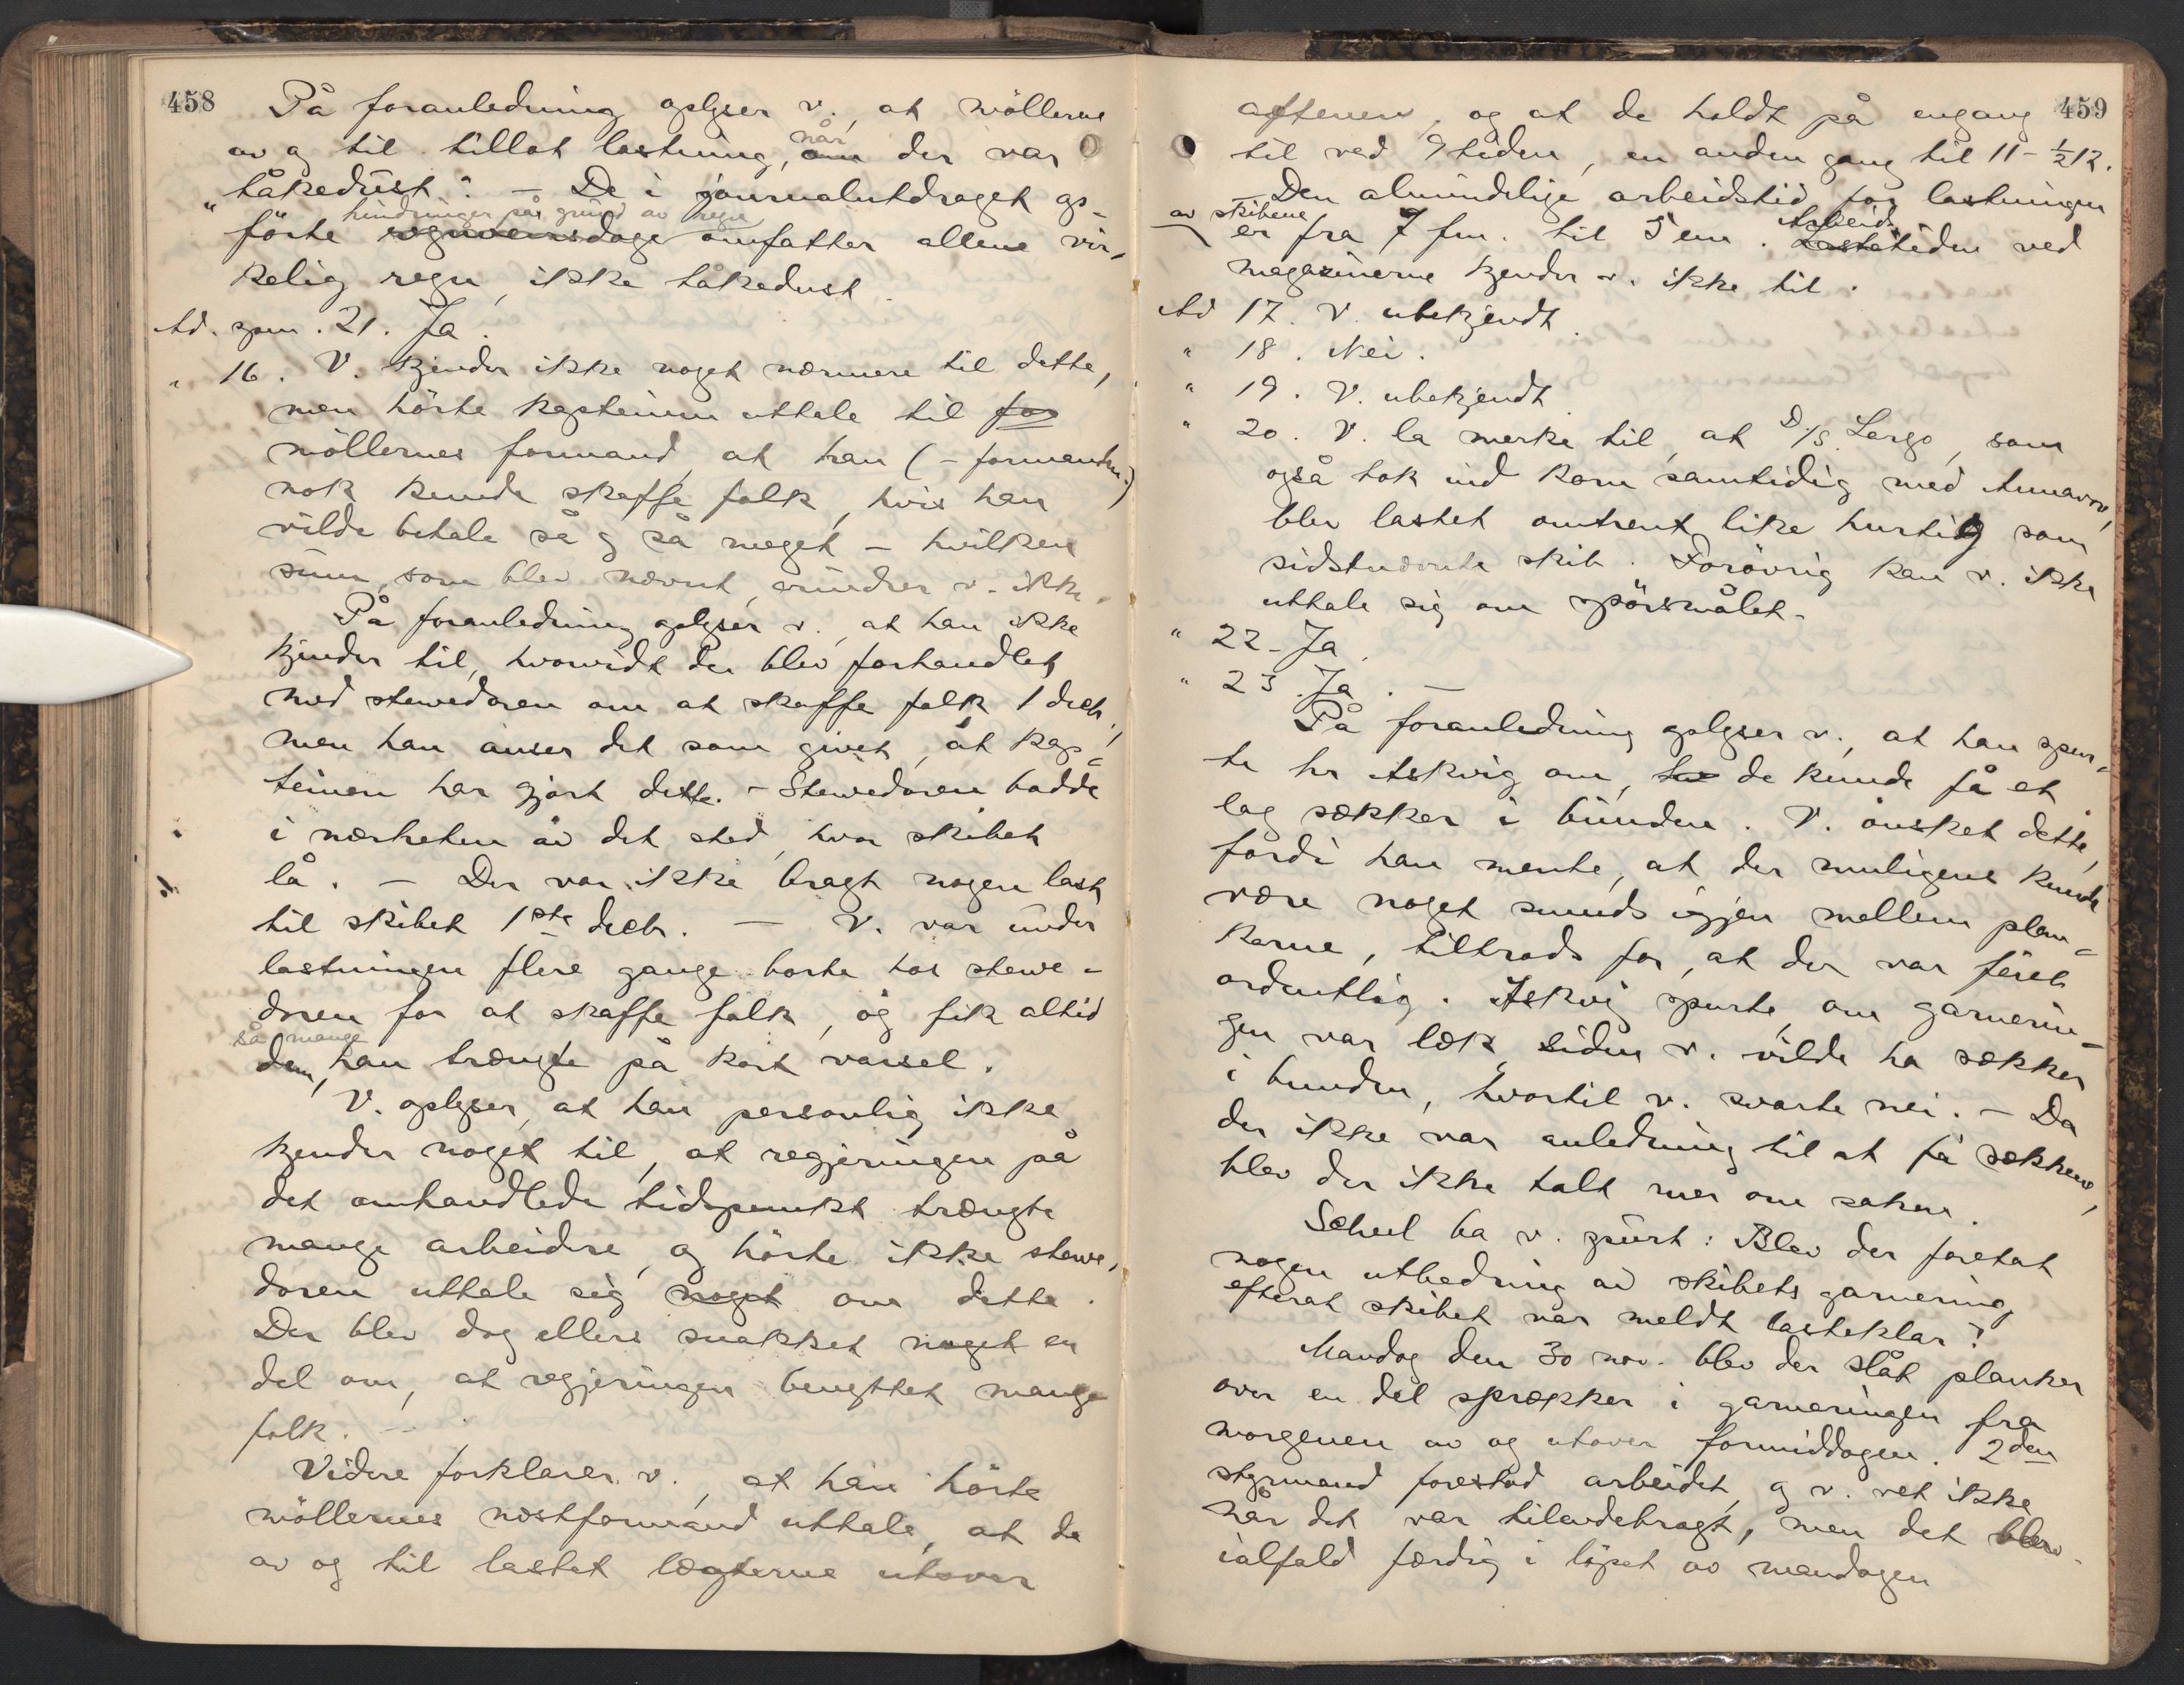 458
På foranledning oplyser v., at möllerne
av og til tillot lastning, når der var
"tåkedust". – De i journalutdraget op-
hindringer på grund av regn
förte regnveirsdage omfatter allene vir-
kelig regn, ikke tåkedust.
Ad. spm. 21. Ja.
" 16. V. kjender ikke noget nærmere til dette,
men hörte kapteinen uttale til for
möllernes formand, at han (– formanden)
nok kunde skaffe folk, hvis han
vilde betale så og så meget – hvilken
sum, som blev nævnt, erindrer v. ikke.
På foranledning oplyser v., at han ikke
kjender til, hvorvidt der blev forhandlet
med stewedoren om at skaffe folk 1 decbr,
men han anser det som givet, at kap-
teinen har gjort dette. – Stewedoren hadde
i nærheten av det sted, hvor skibet
lå. – Der var ikke bragt nogen last
til skibet 1ste decbr. – V. var under
lastningen flere gange borte hos stewe-
doren for at skaffe folk, og fik altid
så mange
dem, han trængte på kort varsel.
V. oplyser, at han personlig ikke
kjender noget til, at regjeringen på
det omhandlede tidspunkt trængte
mange arbeidere, og hörte ikke stewe-
doren uttale sig noget om dette.
Der blev dog ellers snakket noget en
del om, at regjeringen benyttet mange
folk. –
Videre forklarer v., at han hörte
möllernes næstformand uttale, at de
av og til lastet lægterne utover
459
aftenen, og at de holdt på engang
til ved 9 tiden, en anden gang til 11 – ½12.
– Den almindelige arbeidstid for lastningen
av skibene Arbeids
er fra 7 fm. til 5 em. Lastetiden ved
magazinerne kjender v. ikke til.
Ad 17. V. ubekjendt.
" 18. Nei.
" 19. V. ubekjendt.
" 20. V. la merke til, at D/S. Largo, som
også tok ind korn samtidig med Annavore,
blev lastet omtrent like hurtig som
sidstnævnte skib. Forövrig kan v. ikke
uttale sig om spörsmålet.
" 22. Ja.
" 23. Ja. –
På foranledning oplyser v., at han spur-
te hr Askvig om, de kunde få et
lag sækker i bunden. V. önsket dette,
fordi han mente, at der muligens kunde
være noget smuds igjen mellem plan-
kerne, tiltrods for, at der var feiet
ordentlig. Askvig spurte, om garnerin-
gen var læk, siden v. vilde ha sækker
i bunden, hvortil v. svarte nei. – Da
der ikke var anledning til at få sækkene,
blev der ikke talt mer om saken.
Scheel ba v. spurt: Blev der foretat
nogen utbedring av skibets garnering,
efterat skibet var meldt lasteklar?
Mandag den 30 nov. blev der slåt planker
over en del sprækker i garneringen fra
morgenen av og utover formiddagen. 2den
styrmand forestod arbeidet, og v. vet ikke
når det var tilendebragt, men det blev
ialfald færdig i löpet av mandagen